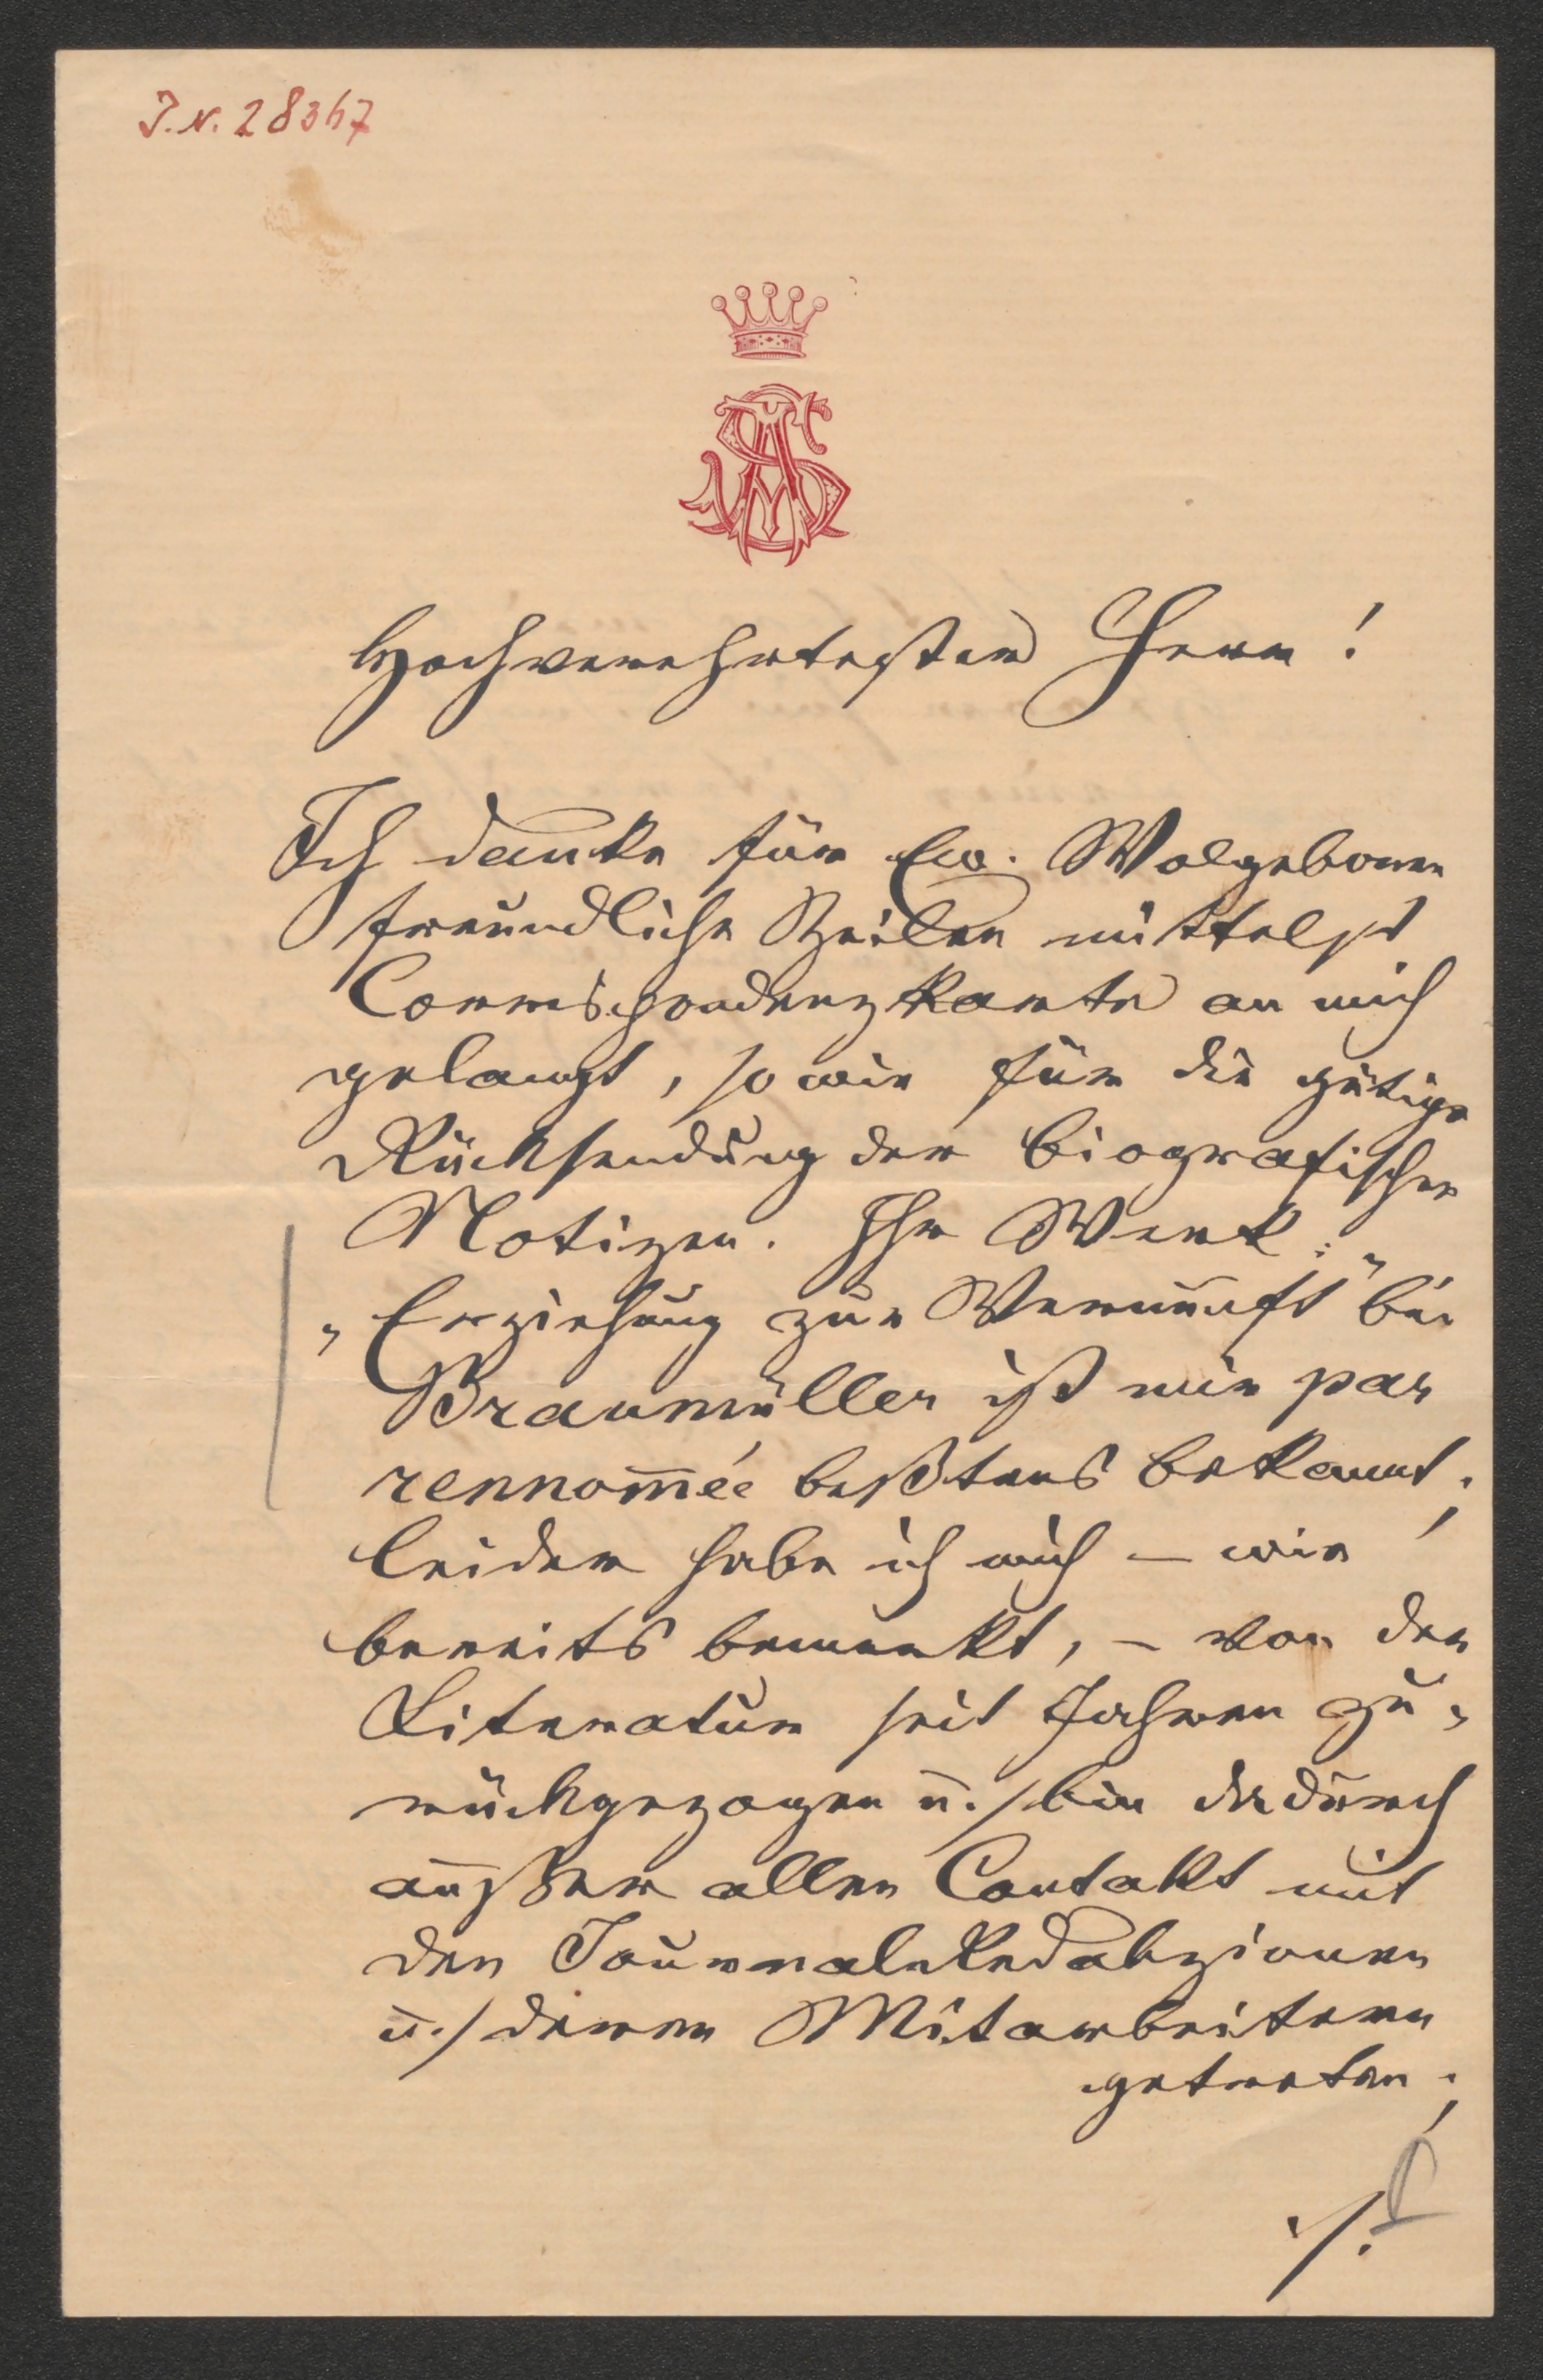 J.N. 28367
AS
Hochverehrtester Herr!
Ich danke für Ew. Wolgeboren
freundliche Zeilen mittelst
Correspondenzkarte an mich
gelangt, sowie für die gütige
Rücksendung der biografischen
Notizen. Ihr Werk:
„Erziehung zur Vernunft" bei
Braumüller ist mir par
rennom̅ée beßtens bekannt;
leider habe ich mich – wie
bereits bemerkt, – von der
Literatur seit Jahren zu-
rückgezogen u./ bin dadurch
außer allen Contakt mit
den Journaleredakzionen
u./ deren Mitarbeitern
getreten;
./.